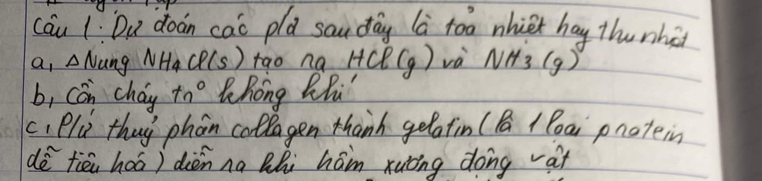 Câu 1: Dự đoán các p/ứ sau đây là toả nhiệt hay thu nhiệt
a, Nung NH4Cl(s) tạo ra HCl(g) và NH3(g)
b, Cồn cháy không khí
c, P/ứ thuỷ phân collagen thành gelatin (là 1 loại protein
dễ tiêu hoá) diễn ra khi hầm xương động vật